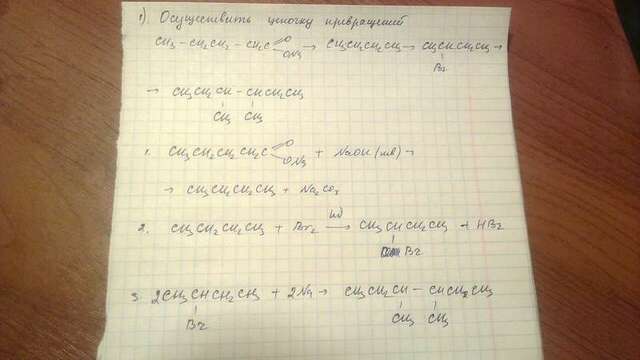 1) Осуществить цепочку превращений
CH3 – CH2CH2 – CH2C=O ONa → CH3CH2CH2CH3 → CH3CHCH2CH3 →
Br
→ CH3CH2CH – CHCH2CH3
CH3 CH3
1. CH3CH2CH2CH2C=O ONa + NaOH (тв) →
→ CH3CH2CH2CH3 + Na2CO3
2. CH3CH2CH2CH3 + Br2 hν → CH3CHCH2CH3 + HBr
Br
3. 2CH3CHCH2CH3 + 2Na → CH3CH2CH – CHCH2CH3
Br CH3 CH3